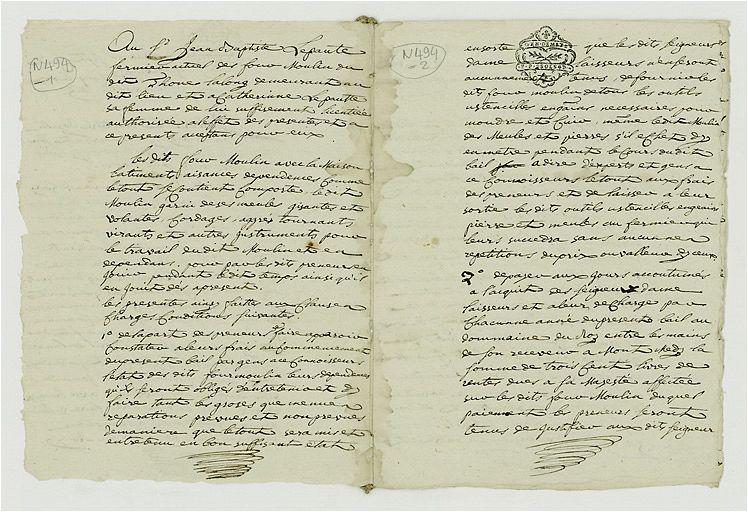 N494
-1-
Au Sr Jean Baptiste Lepaute
fermier actuel des four Moulin du
dit Thone la long demeurant au
dit lieu et Catherinne Lepautte
sa femme de lui suffisement licentiée
authorisée a leffet des presentes et a
ce presents acceptans pour eux
les dit four Moulin avec la Maison
batiments aisances dependences comme
le tout se contient comporte le dit
Moulin garni de ses meules gisantes et
volantes, Cordages, agrès tournants
virants et autres instruments pour
le travail du dit Moulin et en
dependans, pour par les dits preneurs en
jouir pendant le dit temps ainsi qu'ils
en jouissent apresent
les presentes ainsy faittes aux Clauses
Charges Conditions suivantes
1° de la part des preneurs faire
Constater a leurs frais au Commencement
du present bail par gens a ce Connoisseurs
l'etat des dits four moulin leurs dependences
qu'ils seront obligés d'entretenir et d'y
faire tant les grosses que menues
reparations prevues et non prevues
de maniere que le tout sera mis et
entretenu en bon suffisant etat
N494
-2
ensorte que les dits seigneurs
dame laisseurs n'en seront
aucunnement tenus de fournir les
dits four moulin de tous les outils
ustencilles engains necessaires pour
moudre et cuire, meme le dit Moulin
des Meules et pierres s'il echet d'y
en mettre pendant le cours du dit
bail a dire d'experts et gens a
ce Connoisseurs le tout aux frais
des preneurs et de laisser a leur
sortie les dits outils ustencilles engains
pierre et meules au fermier qui
leurs succedra sans aucunne
repetitions du prix ou valleur d'yceux
2° de payer aux jours accoutumés
a l'acquit des seigneurs dame
laisseurs et a leur decharge par
Chacunne année du present bail au
dommaine du Roy entre les mains
de son receveur a Mont medy la
somme de trois cent livres de
rentes dues a sa Majesté affectée
sur les dits four Moulin duquel
paiement les preneurs seront
tenus de justifier aux dits seigneur